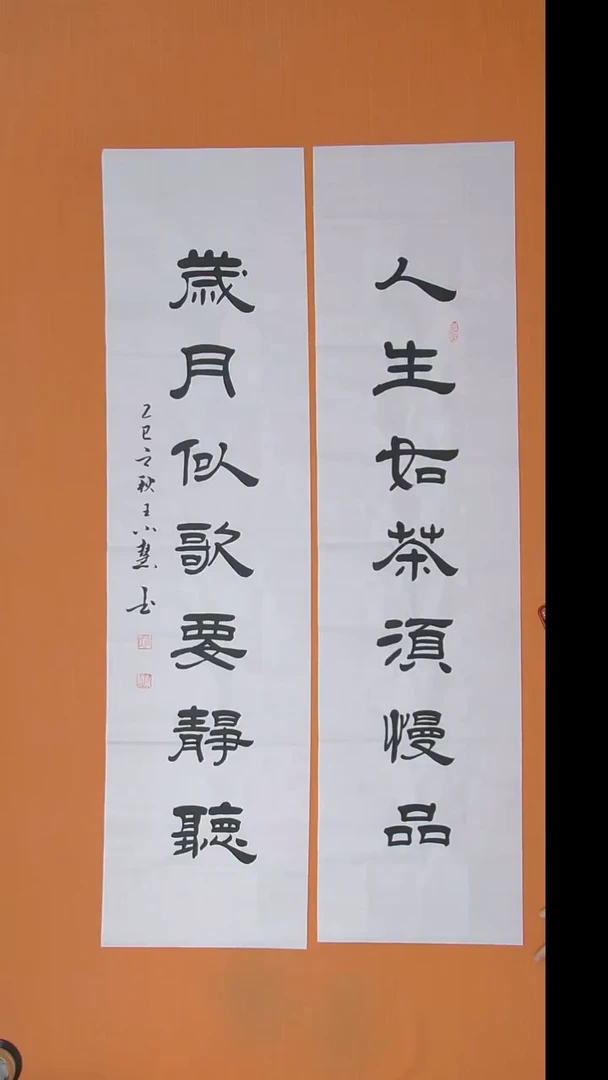 人生如茶須慢品
歲月似歌要靜聽
乙巳立秋王小慧书